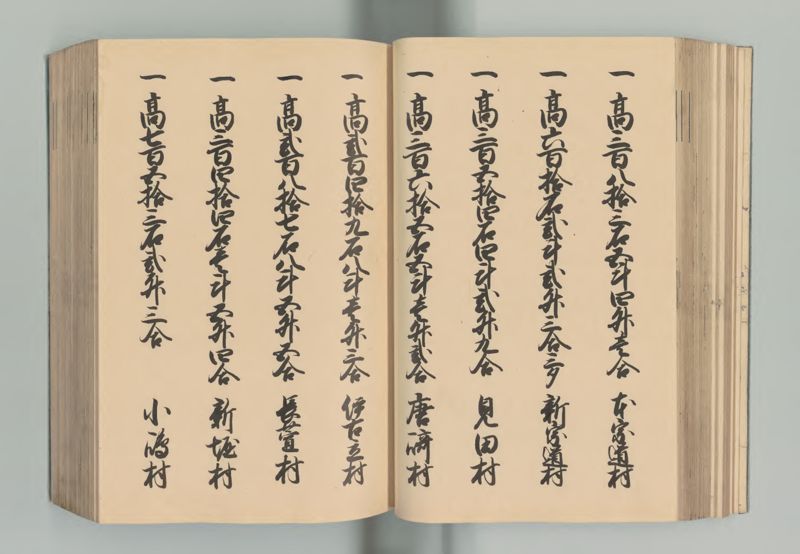 一 高三百八拾三石五斗四升壱合 本家道村
一 高六百拾石弐斗弐升三合三夕 新家道村
一 高三百五拾四石四斗弐升九合 見田村
一 高三百六拾五石五斗壱升弐合 唐崎村
一 高弐百四拾九石八斗壱升三合 伊古立村
一 高弐百八拾七石八斗五升五合 長萱村
一 高三百四拾四石壱斗五升四合 新堀村
一 高七百五拾三石弐升三合 小嶋村